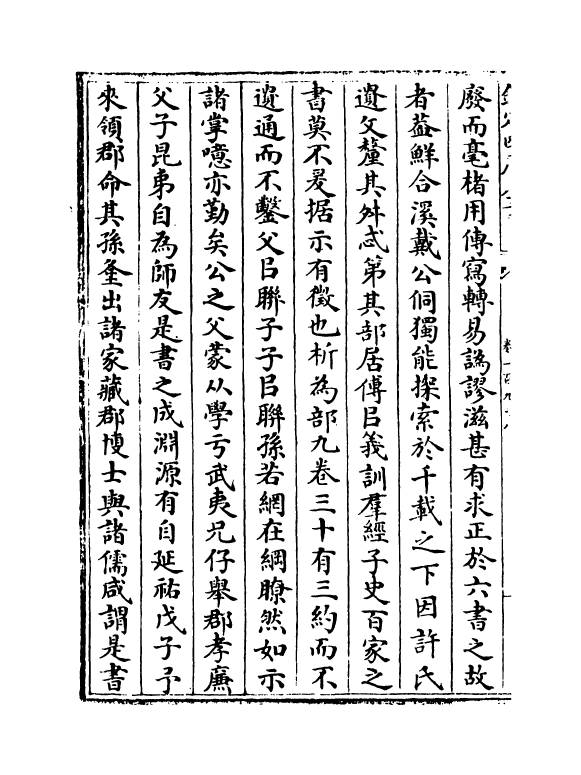 廢而毫楮用傳寫轉易譌謬滋甚有求正於六書之故
者葢鮮合溪戴公侗獨能探索於千載之下因許氏
遺文釐其舛忒第其部居傅㠯義訓羣經子史百家之
書莫不爰据示有徵也析為部九卷三十有三約而不
遺通而不鑿父㠯聯子子㠯聯孫若網在綱瞭然如示
諸掌噫亦勤矣公之父蒙从學亏武夷兄仔舉郡孝廉
父子昆弟自為師友是書之成淵源有自延祐戊子予
來領郡命其孫奎出諸家藏郡博士與諸儒咸謂是書